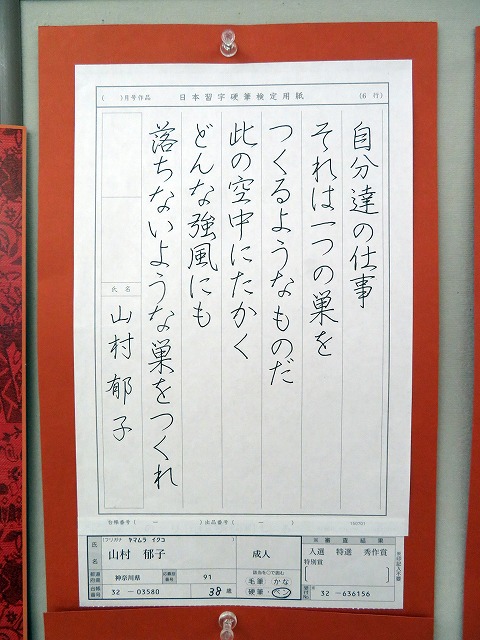 (　　)月号作品　日本習字硬筆検定用紙　(6 行)
自分達の仕事
それは一つの巣を
つくるようなものだ
此の空中にたかく
どんな強風にも
落ちないような巣をつくれ
氏名
山村郁子
台帳番号(　－　)出品番号(　－　)
100701
氏名
(フリガナ) ヤマムラ イクコ
山村　郁子
成人
神奈川県
応募部番号
91
台帳番号
32 － 03580
38 歳
該当を○で囲む
毛筆・かな
硬筆・ペン
※審査結果
入選　特選　秀作賞
特別賞
32 －636156
※印記入不要